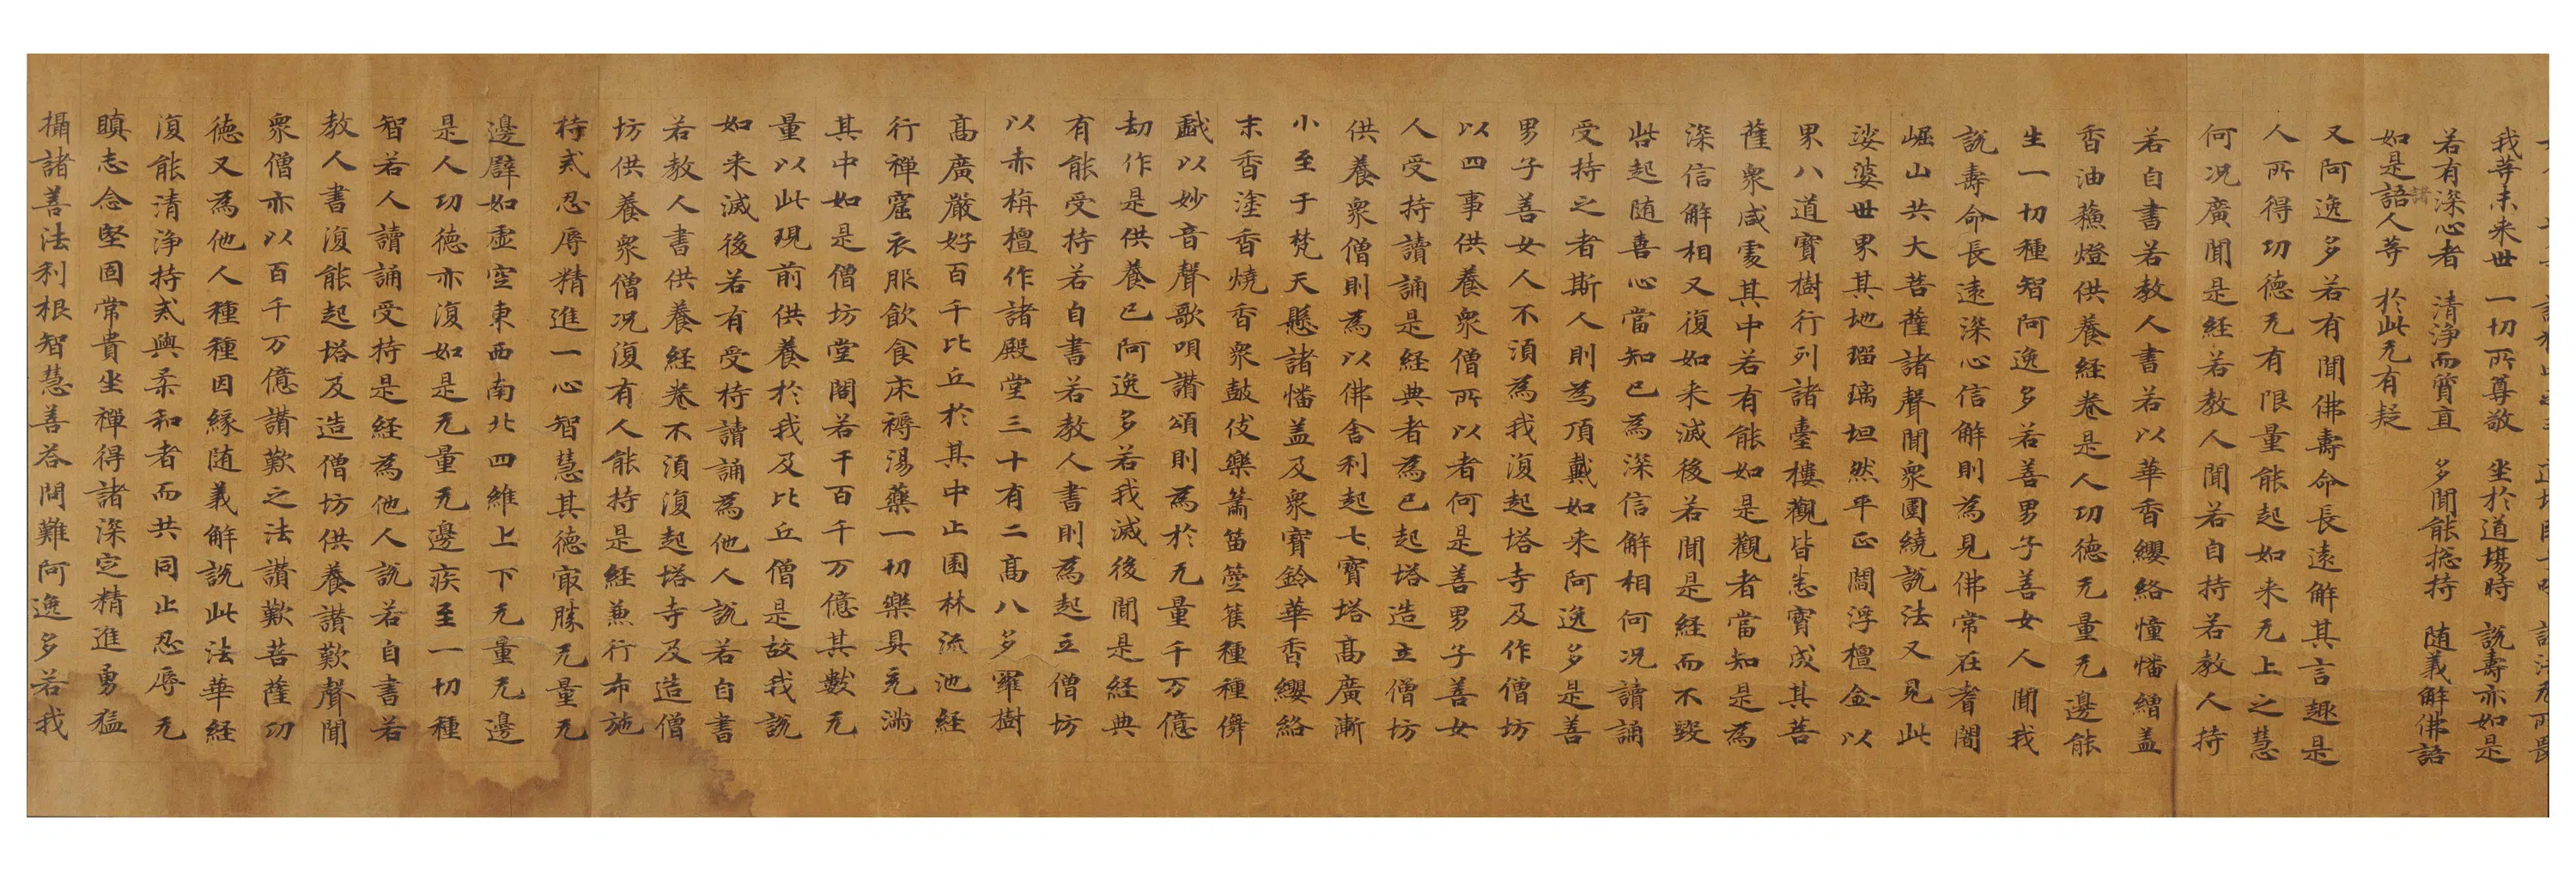 我等未来世 一切所尊敬 坐於道場時 說壽亦如是
若有深心者 清浄而質直 多聞能捴持 随義解佛語
如是語人等 於此无有疑
諸
又阿逸多若有聞佛壽命長遠解其言趣是
人所得功德无有限量能起如来无上之慧
何况廣聞是経若教人聞若自持若教人持
若自書若教人書若以華香纓絡憧幡繒盖
香油蘓燈供養経卷是人功德无量无邊能
生一切種智阿逸多若善男子善女人聞我
說壽命長遠深心信解則為見佛常在耆闍
崛山共大菩薩諸聲聞衆圍繞說法又見此
娑婆世界其地瑠璃坦然平正閻浮檀金以
界八道寳樹行列諸臺樓觀皆悉寳成其菩
薩衆咸䖏其中若有能如是觀者當知是為
深信解相又復如来滅後若聞是経而不毀
呰起随喜心當知已為深信解相何况讀誦
受持之者斯人則為頂戴如来阿逸多是善
男子善女人不湏為我復起塔寺及作僧坊
以四事供養衆僧所以者何是善男子善女
人受持讀誦是経典者為已起塔造立僧坊
供養衆僧則為以佛舍利起七寳塔髙廣漸
小至于梵天懸諸幡盖及衆寳鈴華香纓絡
末香塗香燒香衆皷伎樂簫笛箜篌種種儛
戲以妙音聲歌唄讃頌則為於无量千万億
劫作是供養已阿逸多若我滅後聞是経典
有能受持若自書若教人書則為起立僧坊
以赤栴檀作諸殿堂三十有二髙八多羅樹
髙廣嚴好百千比丘於其中止園林流池経
行禪窟衣服飲食床褥湯藥一切樂具充滿
其中如是僧坊堂閣若干百千万億其數无
量以此現前供養於我及比丘僧是故我說
如来滅後若有受持讀誦為他人說若自書
若教人書供養経卷不湏復起塔寺及造僧
坊供養衆僧况復有人能持是経兼行布施
持戒忍辱精進一心智慧其德㝡勝无量无
邊譬如虛空東西南北四維上下无量无邊
是人功德亦復如是无量无邊疾至一切種
智若人讀誦受持是経為他人說若自書若
教人書復能起塔及造僧坊供養讃歎聲聞
衆僧亦以百千万億讃歎之法讃歎菩薩功
德又為他人種種因緣随義解說此法華経
復能清浄持戒與柔和者而共同止忍辱无
瞋志念堅固常貴坐禪得諸深定精進勇猛
攝諸善法利根智慧善荅問難阿逸多若我